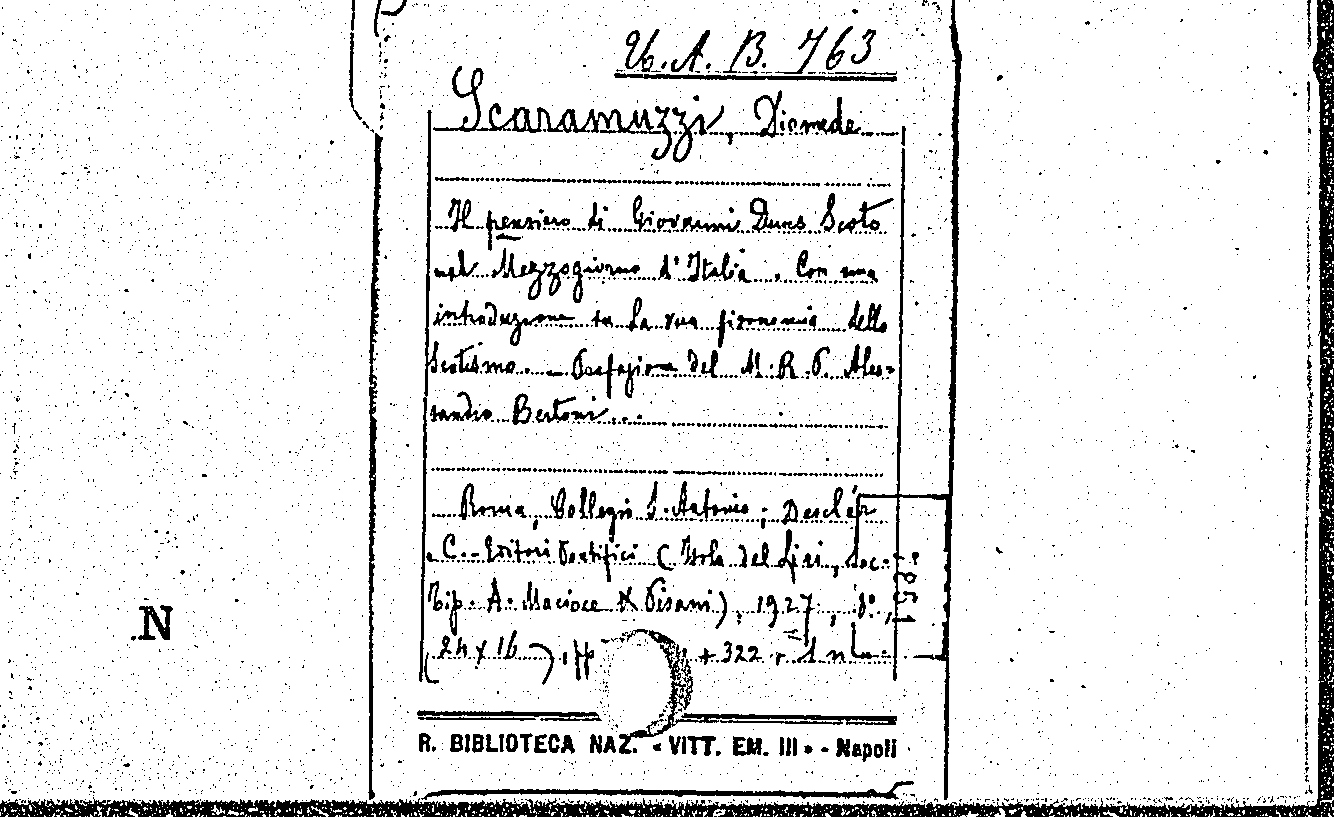 U. A. B. 763
Scaramuzzi, Diomede
Il pensiero di Giovanni Duns Scoto
nel Mezzogiorno d'Italia. Con una
introduzione su la sua fisonomia dello
Scotismo. - Prefazione del M. R. P. Ales-
sandro Bertoni...
Roma, Collegio S. Antonio; Desclée
C. - Editori Pontifici (Isola del Liri, Soc.
Tip. A. Macioce & Pisani), 1927, 8°,
(24 x 16), pp + 322
N
R. BIBLIOTECA NAZ. « VITT. EM. III » - Napoli